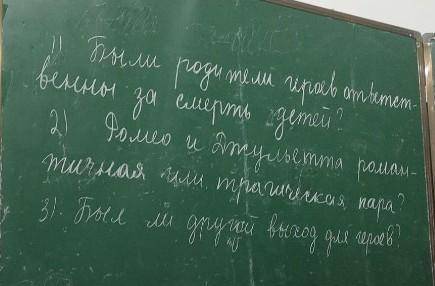 1) Были родители героев ответст-
венны за смерть детей?
2) Ромео и Джульетта роман-
тичная или трагическая пара?
3) Был ли другой выход для героев?